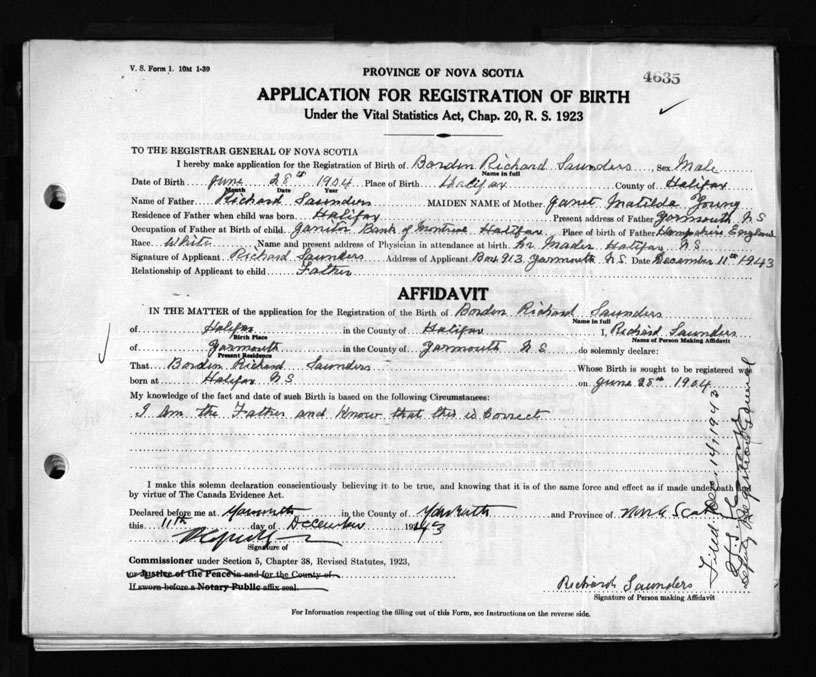 V. S. Form 1. 10M 1-39
4635
PROVINCE OF NOVA SCOTIA
APPLICATION FOR REGISTRATION OF BIRTH
Under the Vital Statistics Act, Chap. 20, R. S. 1923
TO THE REGISTRAR GENERAL OF NOVA SCOTIA
I hereby make application for the Registration of Birth of Borden Richard Saunders Sex Male
Name in full
Date of Birth June 28th 1904 Place of Birth Halifax County of Halifax
Month Date Year
Name of Father Richard Saunders MAIDEN NAME of Mother Janet Matilda Young
Residence of Father when child was born. Halifax Present address of Father Yarmouth N S
Occupation of Father at Birth of child. Janitor Bank of Montreal Halifax Place of birth of Father Hampshire England
Race. White Name and present address of Physician in attendance at birth. Dr Mader Halifax N. S.
Signature of Applicant Richard Saunders Address of Applicant Box 913 Yarmouth N.S. Date December 11th 1943
Relationship of Applicant to child Father
AFFIDAVIT
IN THE MATTER of the application for the Registration of the Birth of Borden Richard Saunders
Name in full
of Halifax in the County of Halifax I, Richard Saunders
Birth Place Name of Person Making Affidavit
of Yarmouth in the County of Yarmouth N S do solemnly declare:
Present Residence
That Borden Richard Saunders Whose Birth is sought to be registered was
born at Halifax N.S. on June 28th 1904
My knowledge of the fact and date of such Birth is based on the following Circumstances:
I Am the Father and Know that this is Correct
I make this solemn declaration conscientiously believing it to be true, and knowing that it is of the same force and effect as if made under oath
by virtue of The Canada Evidence Act.
Declared before me at Yarmouth in the County of Yarmouth and Province of Nova Scotia
this 11th day of December 1943
Signature of
Commissioner under Section 5, Chapter 38, Revised Statutes, 1923,
or Justice of the Peace in and for the County of
If sworn before a Notary Public affix seal.
Richard Saunders
Signature of Person making Affidavit
For Information respecting the filling out of this Form, see Instructions on the reverse side.
Filed Dec. 14, 1943
Deputy Registrar General